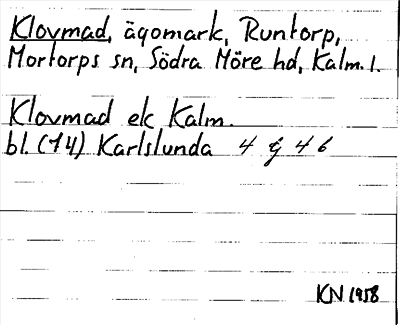 Klovmad, ägomark, Runtorp,
Mortorps sn, Södra Möre hd, Kalm. l.
Klovmad ek Kalm.
bl. (74) Karlslunda 4 G 4 b
KN 1958